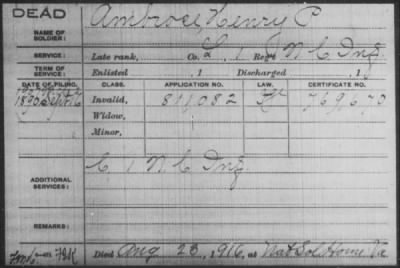 DEAD
NAME OF SOLDIER: Ambrose Henry P
SERVICE: Late rank, Co. L, 1 Reg't N C Inf.
TERM OF SERVICE: Enlisted , 1 Discharged , 1
DATE OF FILING. CLASS. APPLICATION NO. LAW. CERTIFICATE NO.
1890 Sept 16 Invalid, 811,082 769,670
Widow,
Minor,
ADDITIONAL SERVICES: C 1 N.C. Inf.
REMARKS:
Died Aug 23, 1916, at Nat Sol Home Va